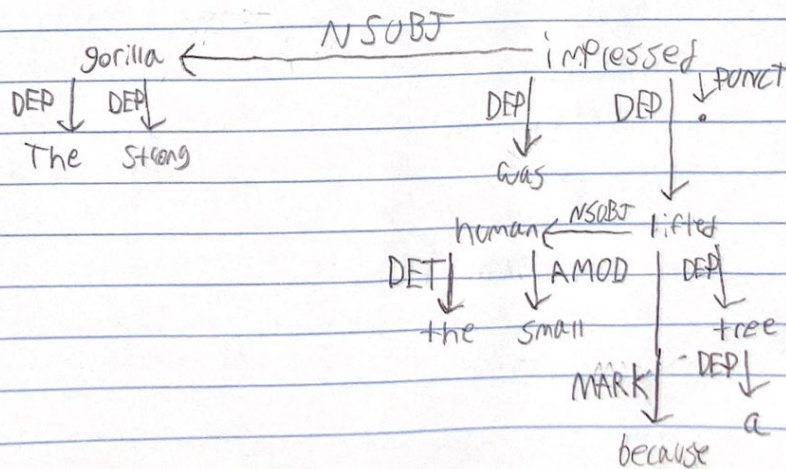 NSUBJ
gorilla impressed
DEP DEP DEP DEP PUNCT
The strong was .
human NSUBJ lifted
DET AMOD DEP
the small tree
MARK DEP
a
because